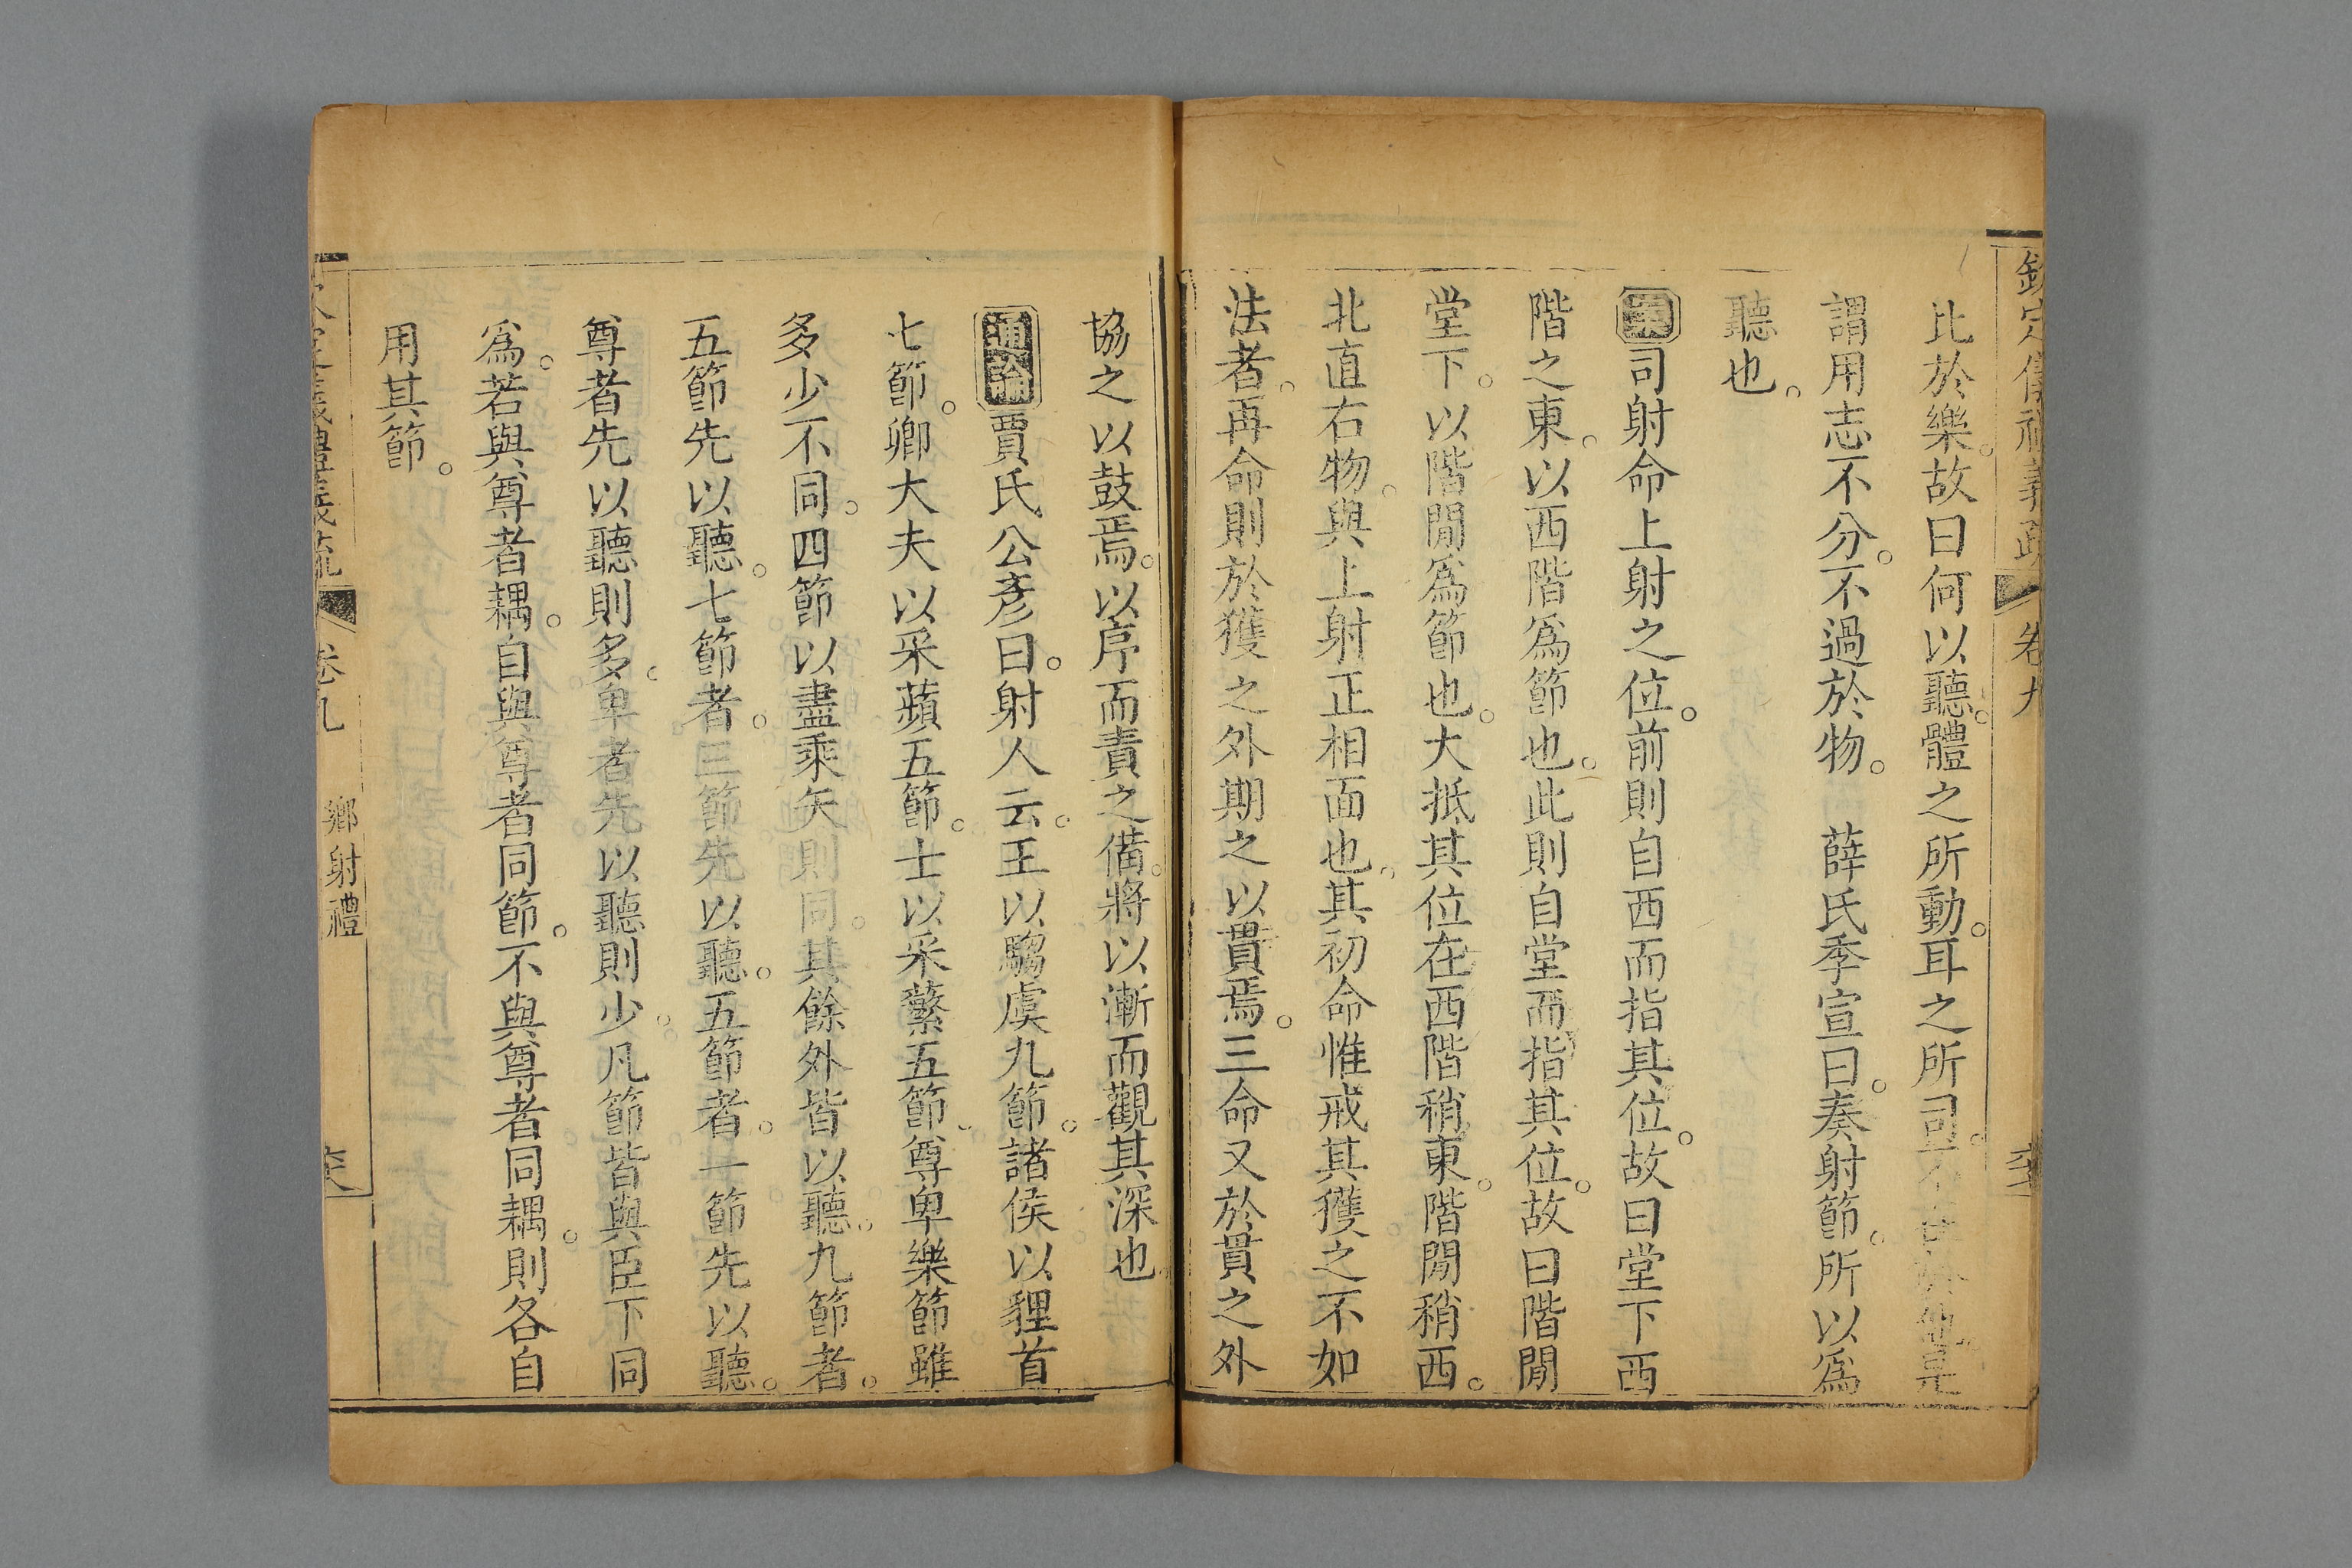 欽定儀禮義疏 卷九
比於樂。故曰何以聽。體之所動。耳之所司。不在於他是
謂用志不分。不過於物。 薛氏季宣曰。奏射節。所以爲
聽也。
案司射命上射之位。前則自西而指其位。故曰堂下西
階之東。以西階爲節也。此則自堂而指其位。故曰階閒
堂下。以階閒爲節也。大抵其位在西階稍東。階閒稍西。
北直右物。與上射正相面也。其初命惟戒其獲之不如
法者。再命則於獲之外期之以貫焉。三命又於貫之外
協之以鼓焉。以序而責之備。將以漸而觀其深也
通論賈氏公彥曰。射人云。王以騶虞九節。諸侯以貍首
七節。卿大夫以采蘋五節。士以采蘩五節。尊卑樂節雖
多少不同。四節以盡乘矢則同。其餘外皆以聽。九節者。
五節先以聽。七節者。三節先以聽。五節者。一節先以聽。
尊者先以聽則多。卑者先以聽則少。凡節皆與臣下同
爲。若與尊者耦。自與尊者同節。不與尊者同耦。則各自
用其節。
欽定儀禮義疏 卷九 鄉射禮